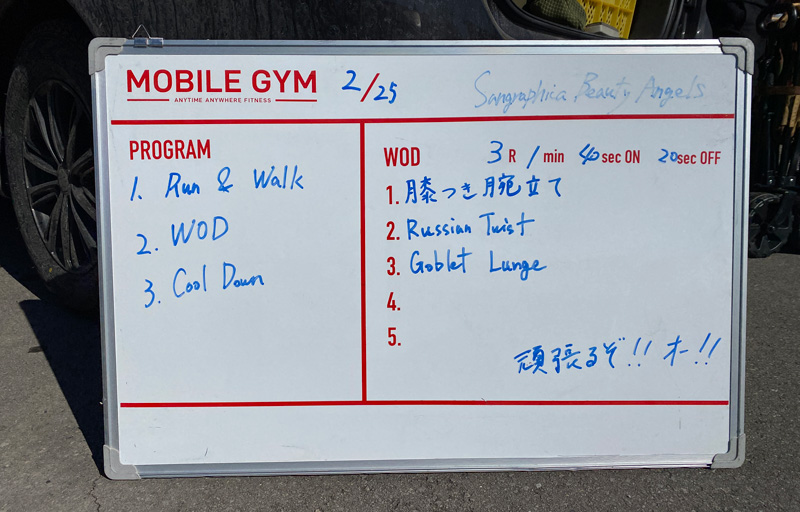 MOBILE GYM 2/25
ANYTIME ANYWHERE FITNESS
Sangraphica Beauty Angels
PROGRAM
1. Run & Walk
2. WOD
3. Cool Down
WOD 3 R 1 min 40 sec ON 20 sec OFF
1. 膝つき腕立て
2. Russian Twist
3. Goblet Lunge
4.
5.
頑張るぞ!! オー!!